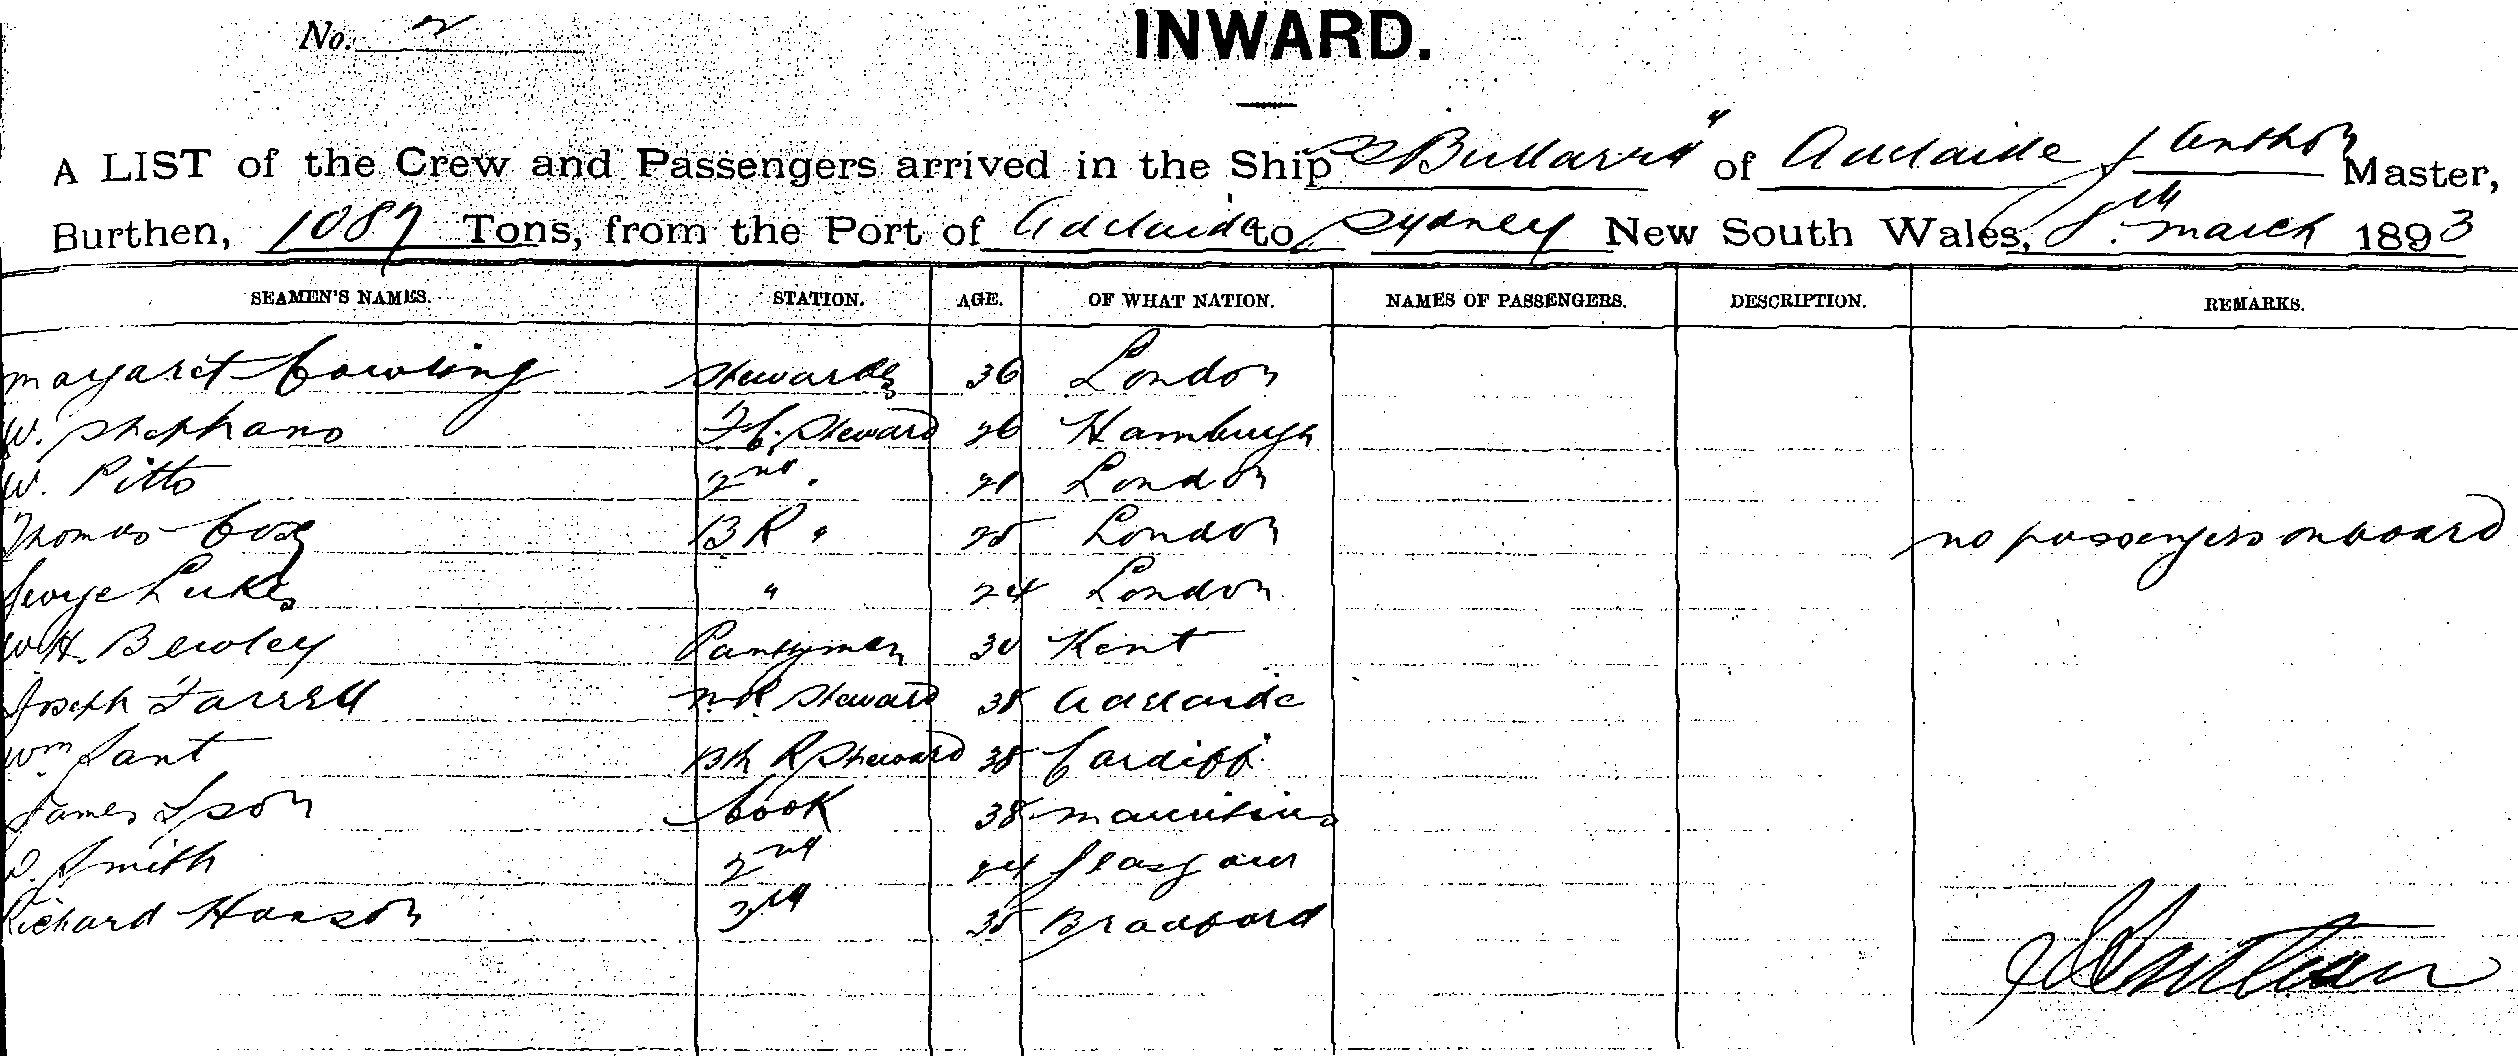 No. 2
INWARD.
A LIST of the Crew and Passengers arrived in the Ship SS "Bullarra" of Adelaide J Anthon Master,
Burthen, 1087 Tons, from the Port of Adelaide to Sydney New South Wales, 8th March 1893
SEAMEN'S NAMES. STATION. AGE. OF WHAT NATION. NAMES OF PASSENGERS. DESCRIPTION. REMARKS.
Margaret Cowling Stewardess 36 London
W. Stephans F.C. Steward 26 Hamburgh
W. Pitts 2nd " 21 London
Thomas Cox B R " 25 London no passengers onboard
George Lukes " 24 London
W H. Bewley Pantryman 30 Kent
Joseph Farrell M.R. Steward 38 Adelaide
Wm Sant Bth R Steward 38 Cardiff
James Ipson Cook 38 Mauritius
D. Smith 2nd 24 Glasgow
Richard Hanson 3rd 35 Bradford